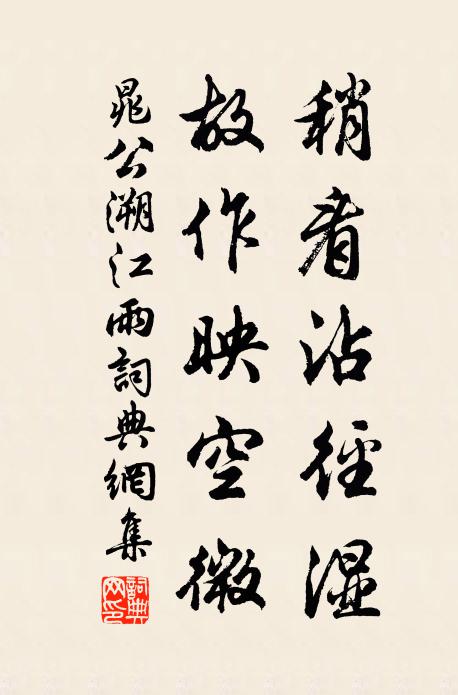 稍看沾徑濕
故作映空微
晁公溯江雨詞典網集
詞典網印